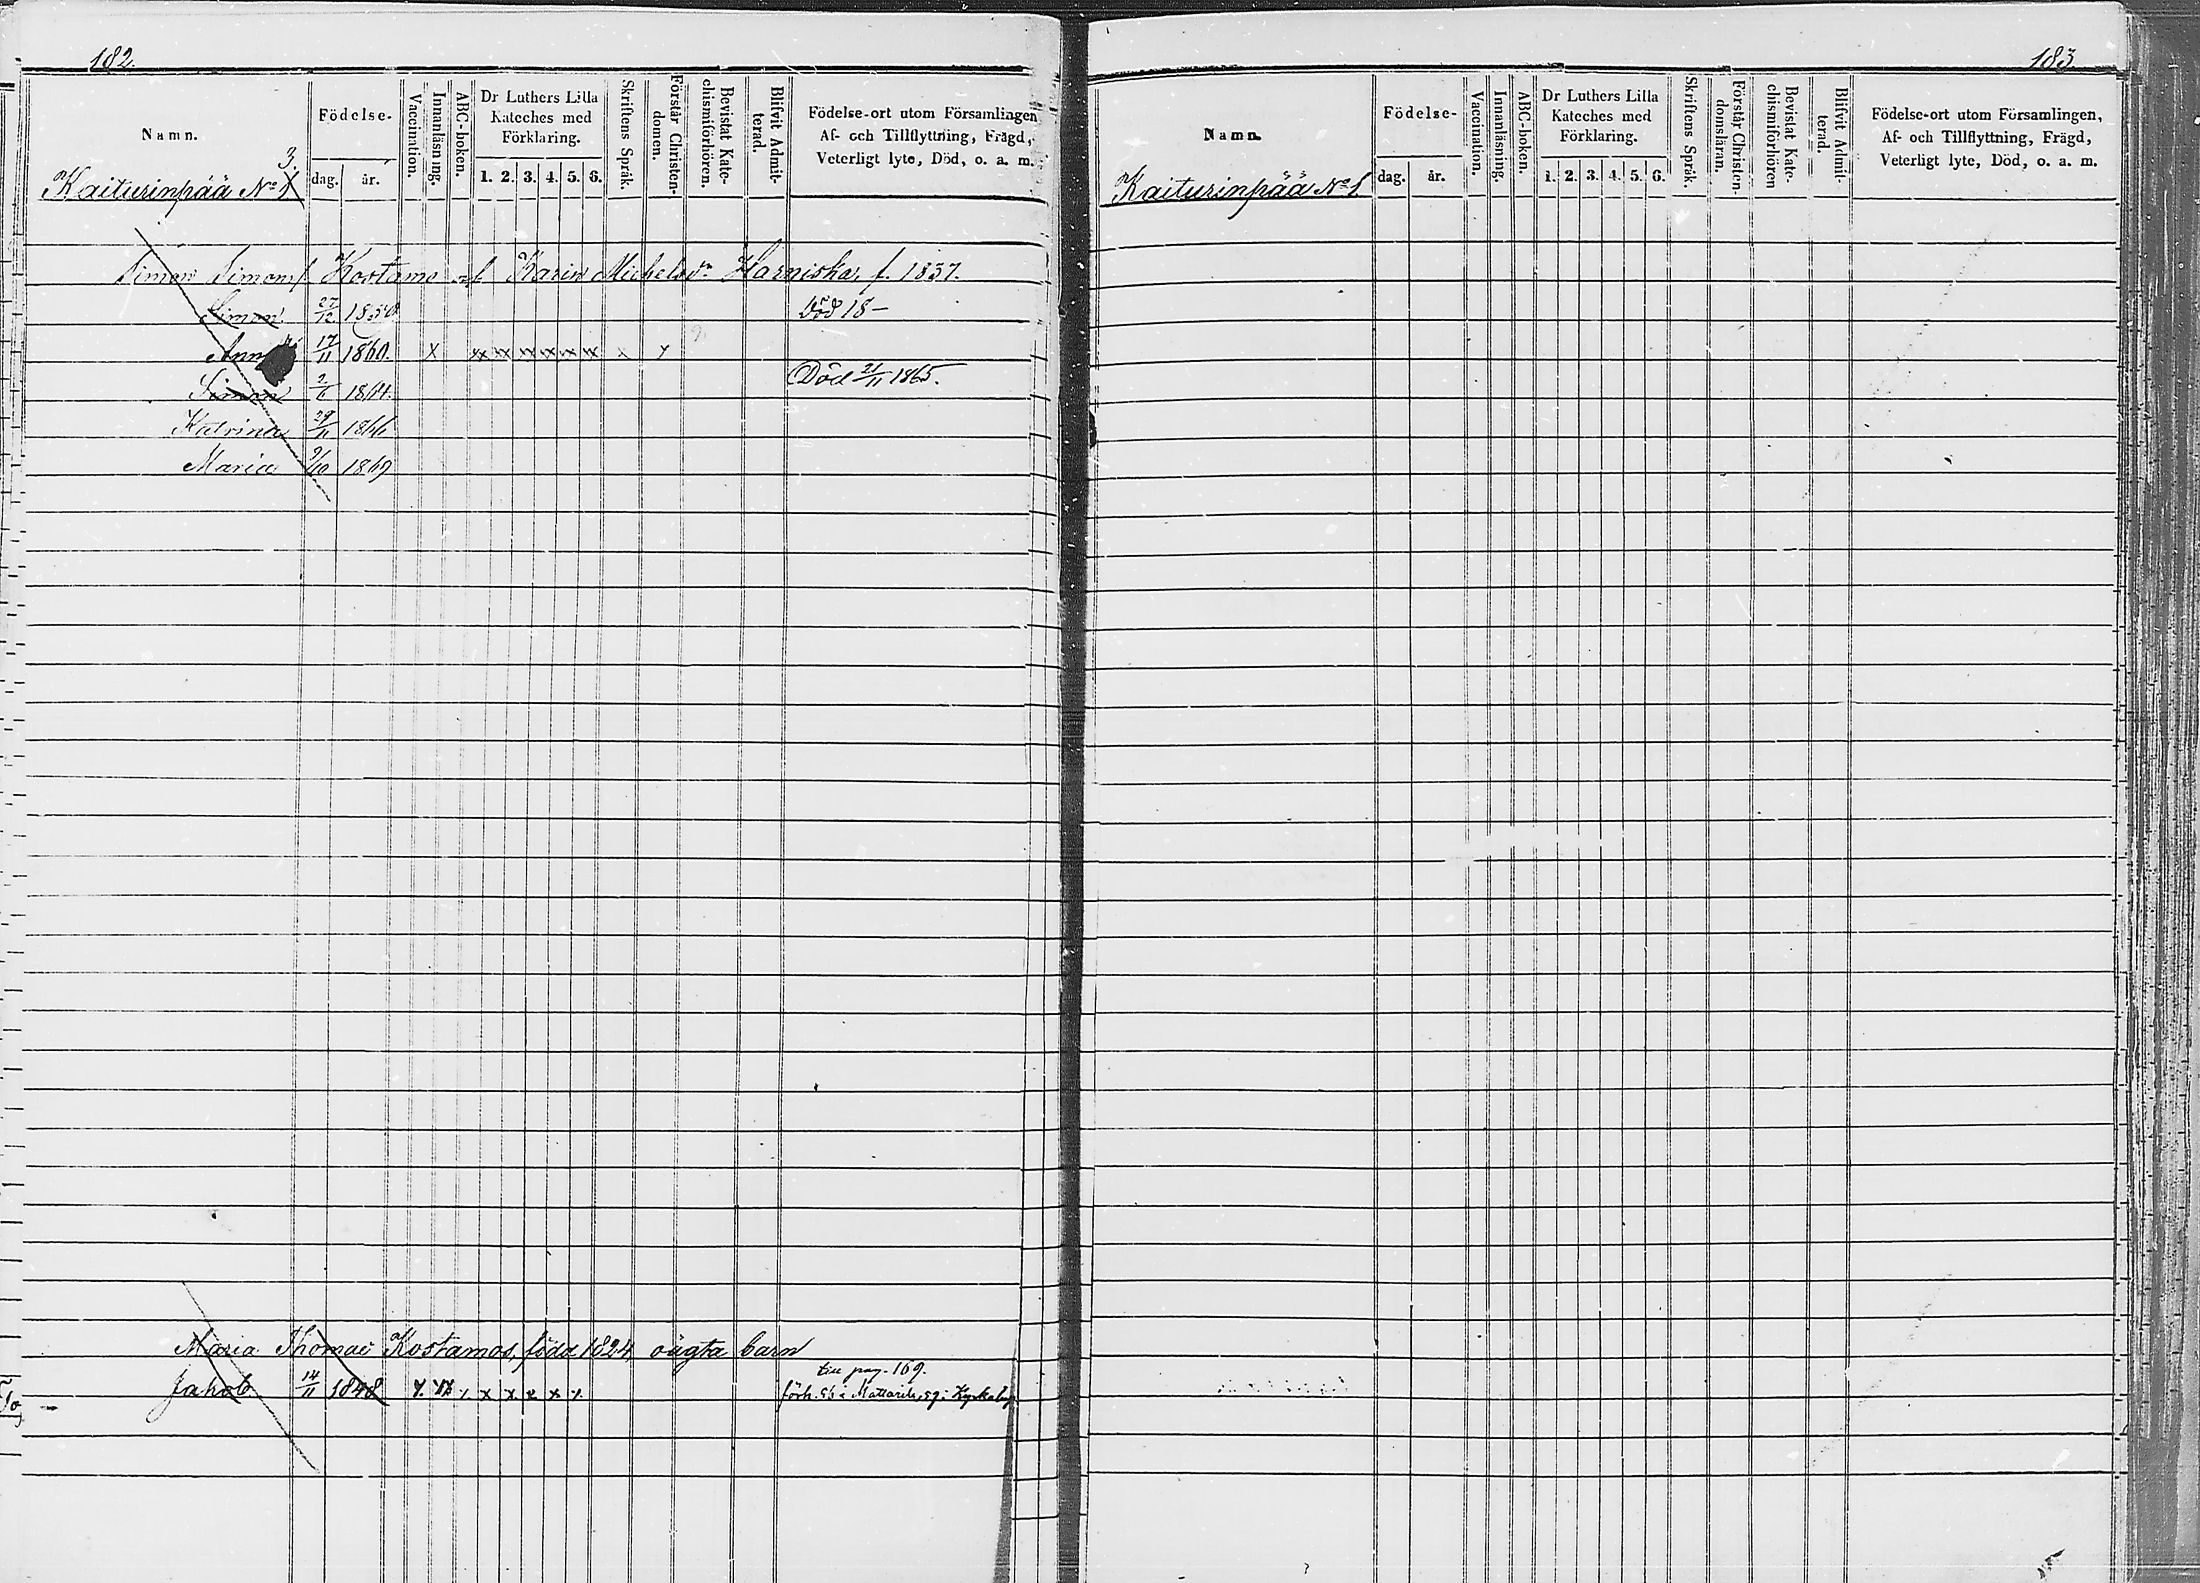 182.
Namn.
Födelse-
dag. år.
Vaccination.
Innanläsning.
ABC-boken.
Dr Luthers Lilla
Kateches med
Förklaring.
1. 2. 3. 4. 5. 6.
Skriftens Språk.
Förstår Christen-
domen.
Bevistat Kate-
chismiförhören.
Blifvit Admit-
terad.
Födelse-ort utom Församlingen
Af- och Tillflyttning, Frägd,
Veterligt lyte, Död, o. a. m.
3.
Kaiturinpää No 1
Simon Simons. Kostamo Karin Michelsdr Harniska, f. 1837.
Simon 27/12 1850 Död 18–
Anna 17/11 1860. x xx xx xx xx xx xx x x
Simon 2/6 1864. Död 21/11 1865.
Katrina 29/11 1866
Maria 9/10 1869
Maria Thomae Kostamos, född 1824, oägta barn
till pag. 169.
Jakob 14/11 1848 x x x x x x
183
Namn.
Födelse-
dag. år.
Vaccination.
Innanläsning.
ABC-boken.
Dr Luthers Lilla
Kateches med
Förklaring.
1. 2. 3. 4. 5. 6.
Skriftens Språk.
Förstår Christen-
domsläran.
Bevistat Kate-
chismiförhören
Blifvit Admit-
terad.
Födelse-ort utom Församlingen,
Af- och Tillflyttning, Frägd,
Veterligt lyte, Död, o. a. m.
Kaiturinpää No 1